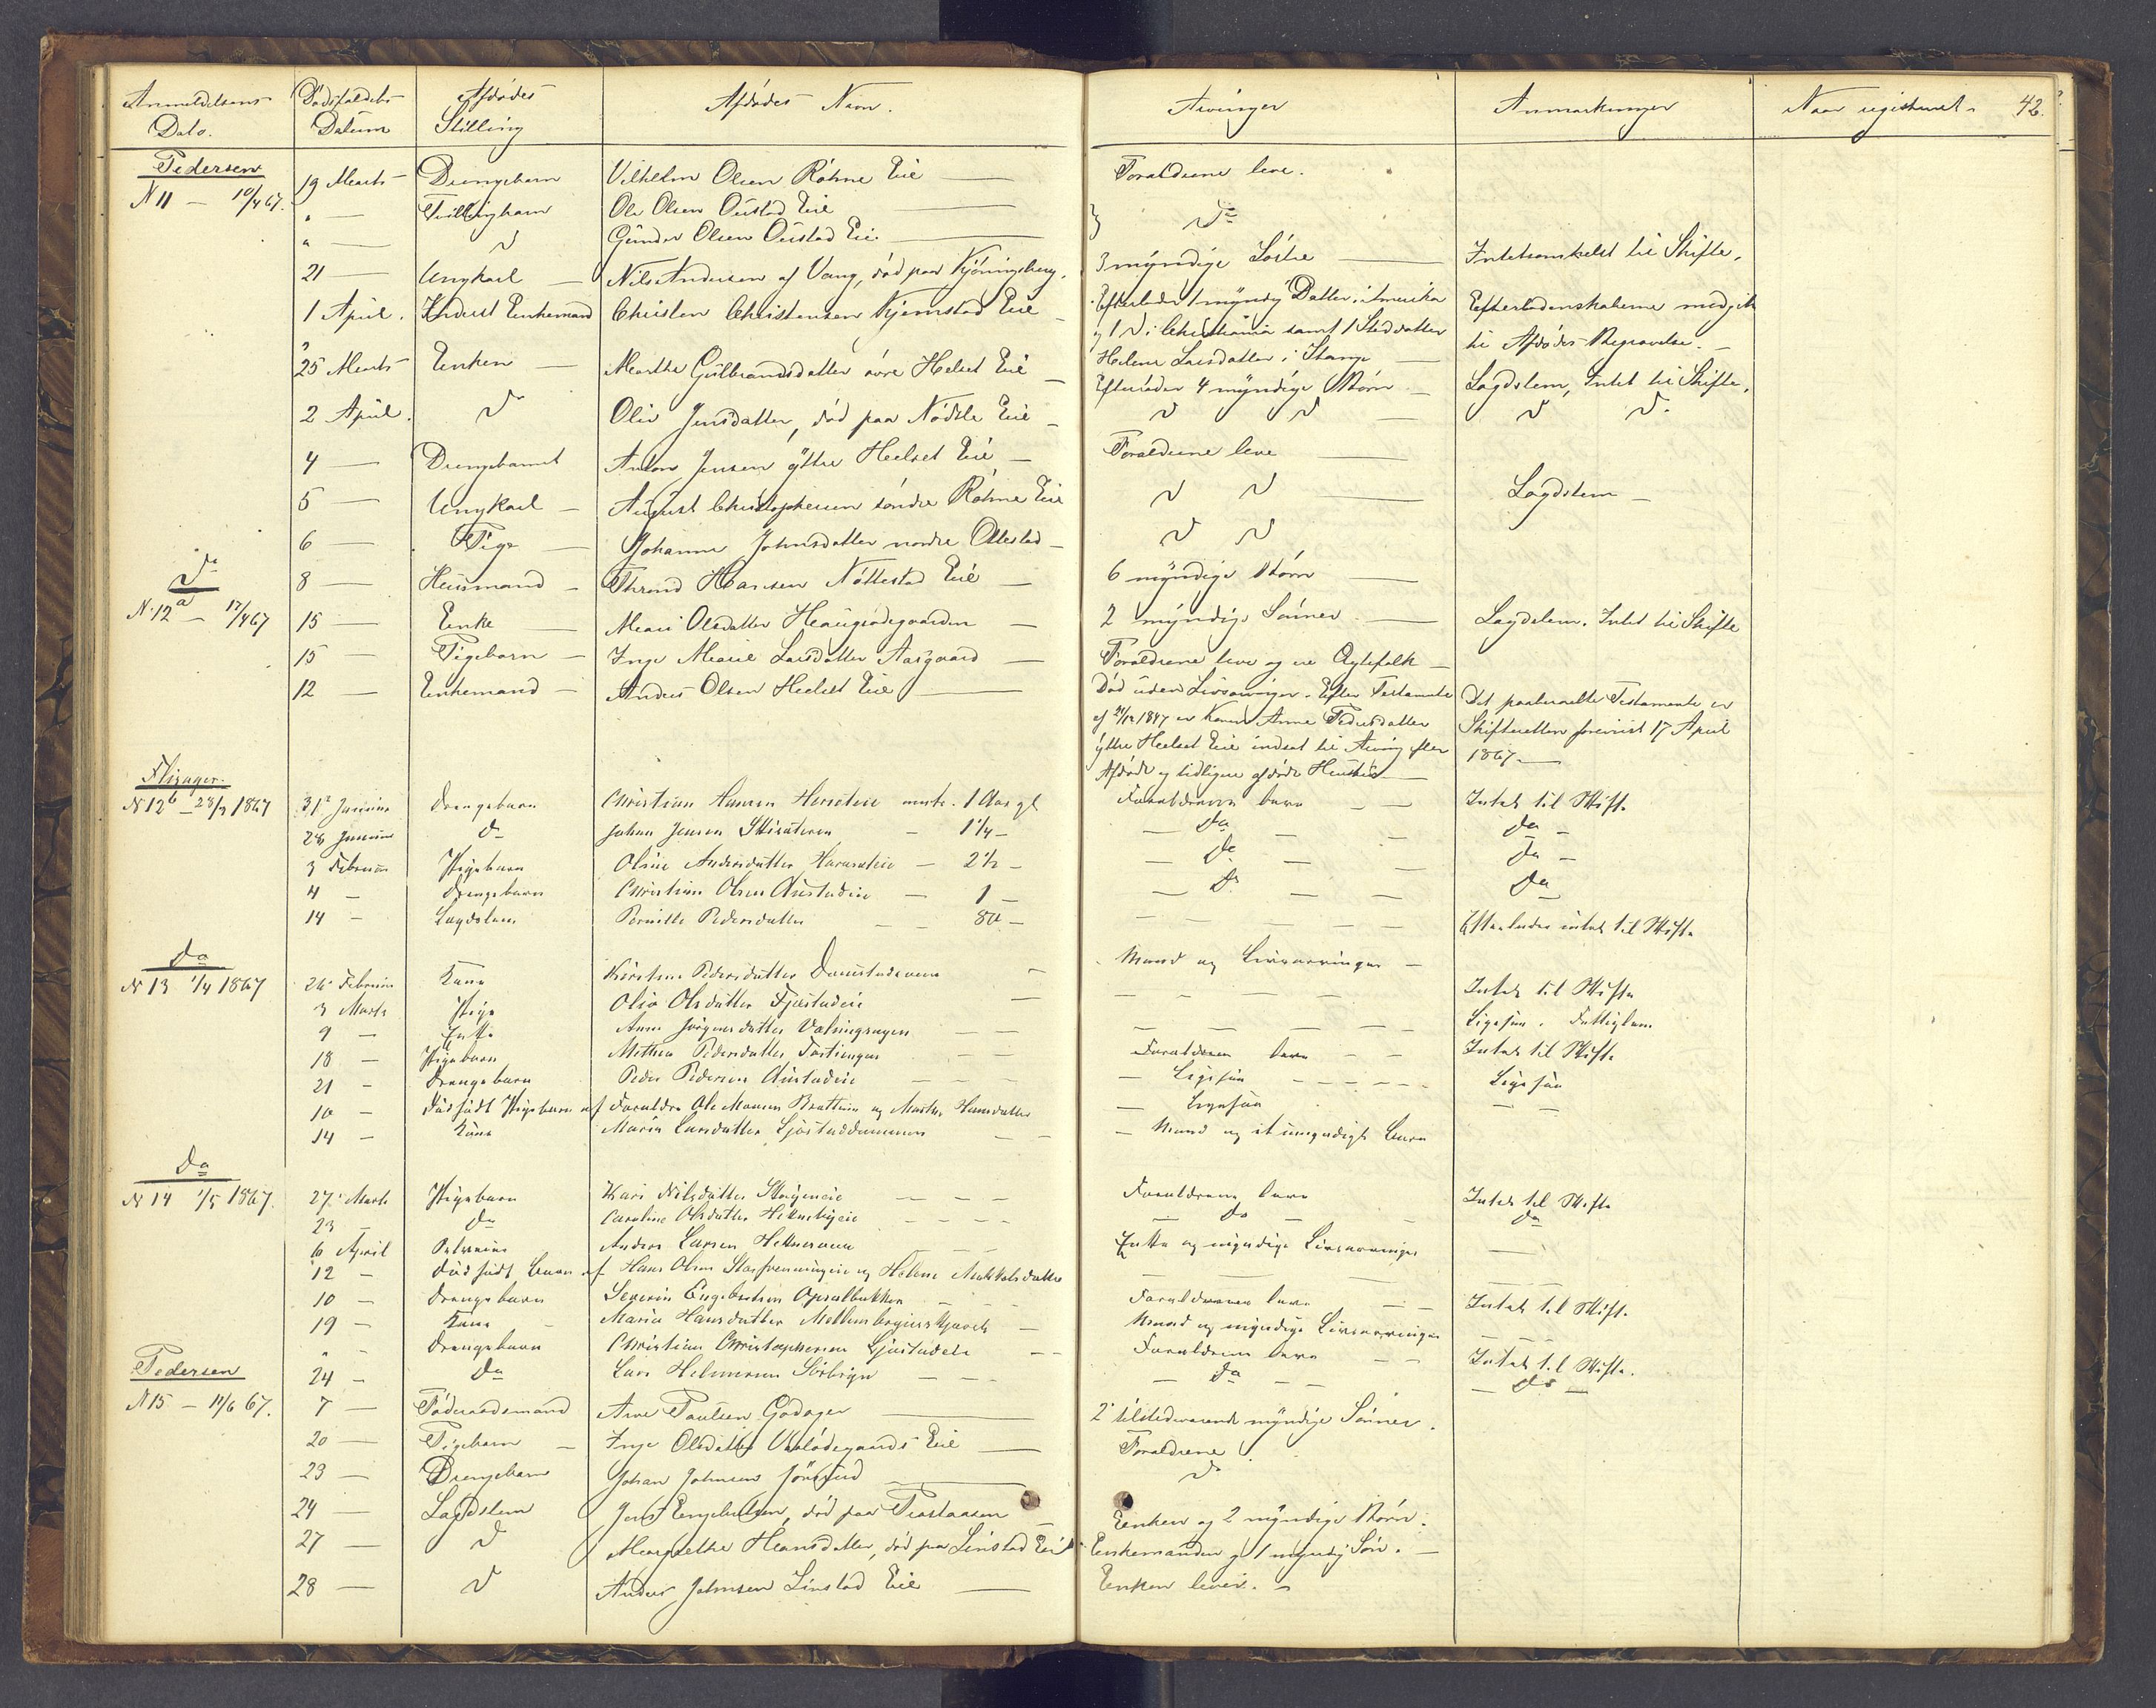 Anmeldelsens Dato. Dødsfaldets Datum Afdødes Stilling Afdødes Navn. Arvinger Anmærkninger Naar registreret. 42.
Pedersen
N 11 — 10/4 67. 19 Marts Drengebarn Vilhelm Olsen Røhne Eie — Forældrene leve.
" — Tvillingbarn Ole Olsen Oustad Eie — do
" — do Gunder Olsen Oustad Eie —
21 — Ungkarl — Nils Andersen af Vang, død paa — 3 myndige — Intetsomhelst til Skifte.
1 April. Inderst Enkemand Christen Christensen Kjemstad Eie — Efterlader 1 myndig Datter i Amerika Efterladenskaberne medgik
og 1 do i Christiania samt 1 Steddatter til Afdødes Begravelse. —
Helene Larsdatter i Stange —
25 Marts Enken — Marthe Gulbrandsdatter øvre Helset Eie — Efterlader 4 myndige Børn — Lægdslem, Intet til Skifte.
2 April. do Olia Jensdatter, død paa Nødsle Eie — do do — do do
4 — Drengebarnet Anton Jensen yttre Heelset Eie — Forældrene leve —
5 — Ungkarl — August Christophersen søndre Røhne Eie do do — Lægdslem —
6 — Pige — Johanne Johnsdatter nordre Ottestad — do do
do
N. 12 a — 17/4 67 8 — Huusmand — Thrond Hansen Nøttestad Eie — 6 myndige Børn —
15 — Enke — Mari Olsdatter Haugsødegaarden — 2 myndige Sønner — Lægdslem. Intet til Skifte
15 — Pigebarn — Inge Marie Larsdatter Aasgaard — Forældrene leve og ere Ægtefolk —
12 — Enkemand — Anders Olsen Heelset Eie — Død uden Livsarvinger. Efter Testamente Det paaberaabte Testamente er
af 1847 er Karen Anne Pedersdatter Skifteretten foreviist 17 April
yttre Heelset Eie indsat til Arving efter 1867 —
Afdøde og tidligere afdøde Hustru —
Flisager.
N 12 b — 28/3 1867 31 Januar Drengebarn Christian Hansen 1 Aar gl Forældrene leve — Intet til Skifte
28 Januar do Johan Jensen — 1 1/4 — do — do —
3 Februar Pigebarn Oline Andersdatter — 2 1/2 — do — do —
4 — Drengebarn Christian Olsen — 1 — do — do
14 — Lægdslem Pernille Pedersdatter — 80 — Efterlader intet til Skifte
do
N 13 1/4 1867 26 Februar Kone Kirstine Pedersdatter — Mand og Livsarvinger — Intet til Skifte
3 Marts Pige Olia Olsdatter — Ligesaa. Fattiglem
9 — Enke Anne Jørgensdatter — Intet til Skifte
18 — Pigebarn Mathea Pedersdatter — Forældrene leve — Ligesaa
21 — Drengebarn Peder Pedersen — Ligesaa —
10 — Dødfødt Pigebarn af Forældre Ole Monsen Bratlien og Marthe Hansdatter — Ligesaa —
14 — Kone Maria Larsdatter — Mand og et umyndigt Barn
do
N 14 1/5 1867 27 Marts Pigebarn Kari Nilsdatter — Forældrene leve Intet til Skifte
23 — do Caroline Olsdatter — do — do
6 April Anders Larsen — Enke og myndige Livsarvinger —
12 — Dødfødt Barn af Hans Olsen og Helene —
10 — Drengebarn Severin Engebretsen — Forældrene leve — Intet til Skifte
19 — Kone Maria Hansdatter — Mand og myndige Livsarvinger —
" — Drengebarn Christian Christophersen — Forældrene leve — Intet til Skifte.
24 — do Lars Helmersen — do — do —
Pedersen
N 15 — 11/6 67. 7 — Føderaadsmand Arne Paulsen Godager — 2 tilstedeværende myndige Sønner.
20 — Pigebarn — Inge Olsdatter Eie — Forældrene
23 — Drengebarn Johan Johnsen — do
24 — Lægdslem Jens Engebretsen, død paa — Enken og 2 myndige Børn.
27 — do Margrethe Hansdatter, død paa Linstad Eie Enkemanden og 1 myndig Søn. —
28 — do Anders Johnsen Linstad Eie — Enken lever. —